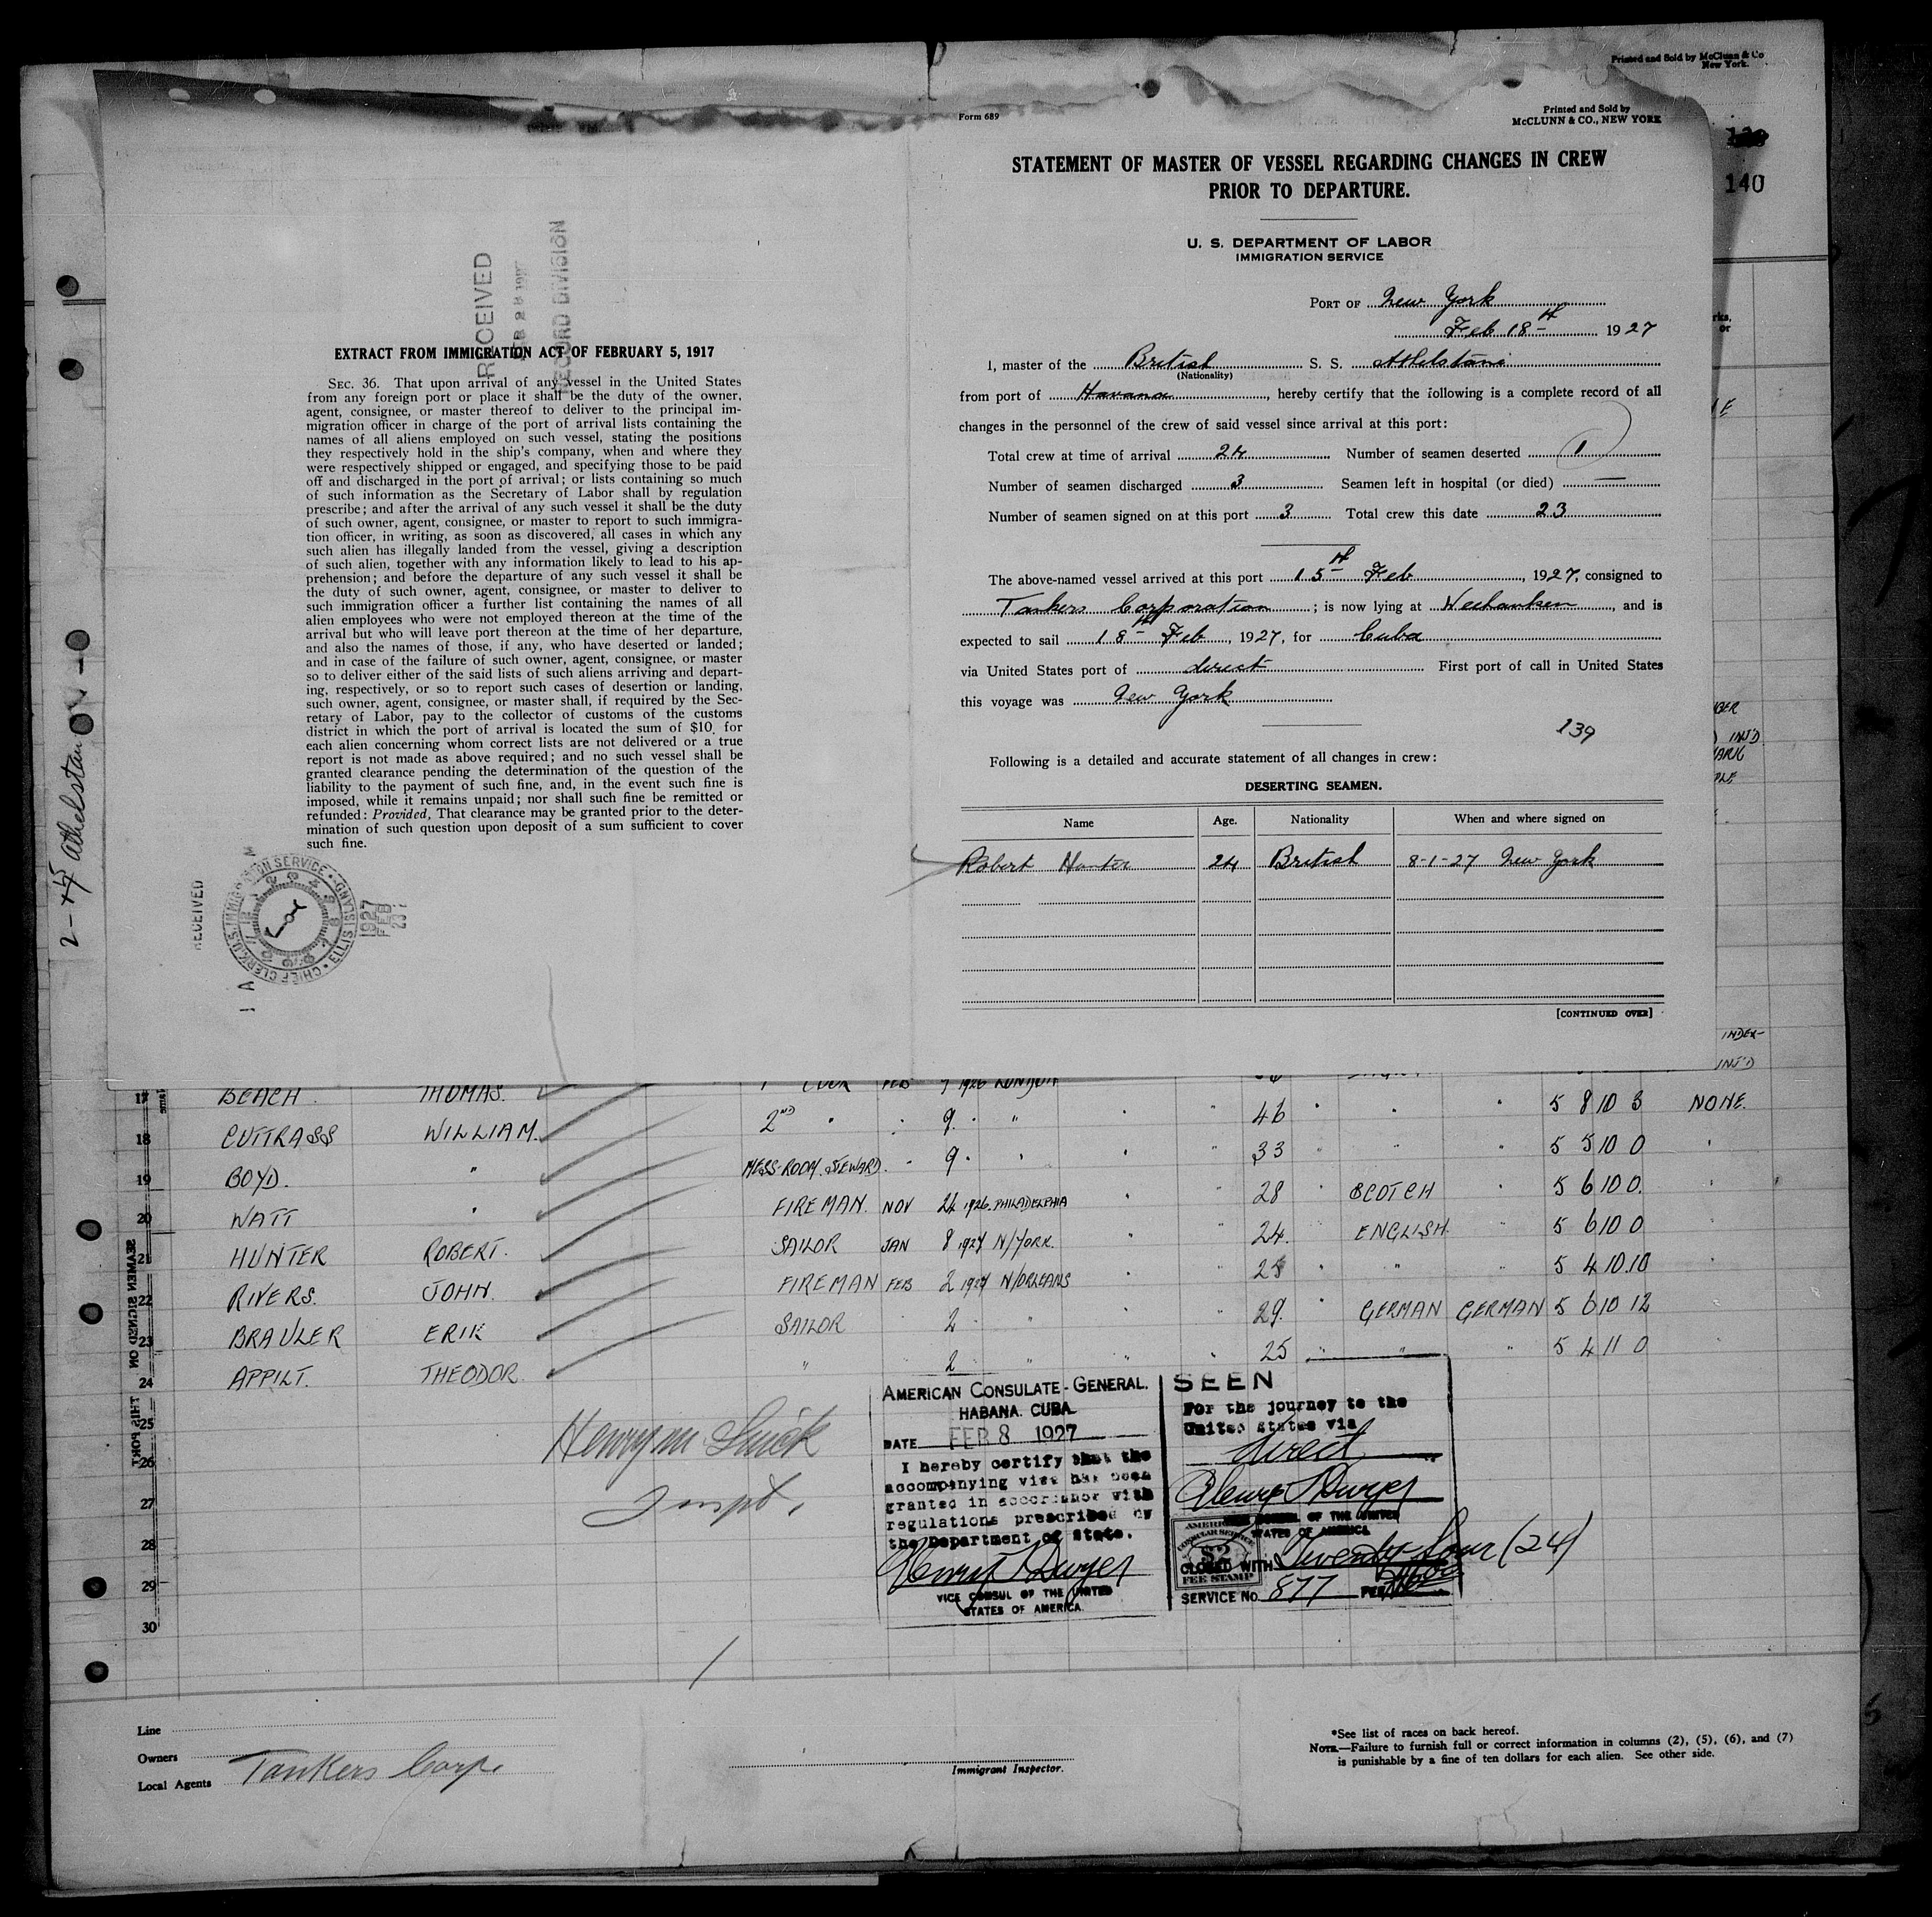 Printed and Sold by McClunn & Co
New York.
Form 689
Printed and Sold by
McCLUNN & CO., NEW YORK
140
STATEMENT OF MASTER OF VESSEL REGARDING CHANGES IN CREW
PRIOR TO DEPARTURE.
U. S. DEPARTMENT OF LABOR
IMMIGRATION SERVICE
PORT OF New York
Feb 18th 1927
I, master of the British S. S. Athelstane
(Nationality)
from port of Havana, hereby certify that the following is a complete record of all
changes in the personnel of the crew of said vessel since arrival at this port:
Total crew at time of arrival 24 Number of seamen deserted 1
Number of seamen discharged 3 Seamen left in hospital (or died) —
Number of seamen signed on at this port 3 Total crew this date 23
The above-named vessel arrived at this port 15th Feb, 1927, consigned to
Tankers Corporation; is now lying at Weehauken, and is
expected to sail 18th Feb, 1927, for Cuba
via United States port of direct First port of call in United States
this voyage was New York
139
Following is a detailed and accurate statement of all changes in crew:
DESERTING SEAMEN.
Name Age. Nationality When and where signed on
Robert Hunter 24 British 8-1-27 New York
[CONTINUED OVER]
RECEIVED
FEB 28 1927
RECORD DIVISION
EXTRACT FROM IMMIGRATION ACT OF FEBRUARY 5, 1917
SEC. 36. That upon arrival of any vessel in the United States
from any foreign port or place it shall be the duty of the owner,
agent, consignee, or master thereof to deliver to the principal im-
migration officer in charge of the port of arrival lists containing the
names of all aliens employed on such vessel, stating the positions
they respectively hold in the ship's company, when and where they
were respectively shipped or engaged, and specifying those to be paid
off and discharged in the port of arrival; or lists containing so much
of such information as the Secretary of Labor shall by regulation
prescribe; and after the arrival of any such vessel it shall be the duty
of such owner, agent, consignee, or master to report to such immigra-
tion officer, in writing, as soon as discovered, all cases in which any
such alien has illegally landed from the vessel, giving a description
of such alien, together with any information likely to lead to his ap-
prehension; and before the departure of any such vessel it shall be
the duty of such owner, agent, consignee, or master to deliver to
such immigration officer a further list containing the names of all
alien employees who were not employed thereon at the time of the
arrival but who will leave port thereon at the time of her departure,
and also the names of those, if any, who have deserted or landed;
and in case of the failure of such owner, agent, consignee, or master
so to deliver either of the said lists of such aliens arriving and depart-
ing, respectively, or so to report such cases of desertion or landing,
such owner, agent, consignee, or master shall, if required by the Sec-
retary of Labor, pay to the collector of customs of the customs
district in which the port of arrival is located the sum of $10 for
each alien concerning whom correct lists are not delivered or a true
report is not made as above required; and no such vessel shall be
granted clearance pending the determination of the question of the
liability to the payment of such fine, and, in the event such fine is
imposed, while it remains unpaid; nor shall such fine be remitted or
refunded: Provided, That clearance may be granted prior to the deter-
mination of such question upon deposit of a sum sufficient to cover
such fine.
RECEIVED
CHIEF CLERK, U.S. IMMIGRATION SERVICE ELLIS ISLAND
1927
FEB
23
Athelstan
INDEX-
INJ'D
17 BEACH. THOMAS. COOK FEB 9 1926 LONDON
18 CUTTRASS WILLIAM. 2ND " 9. " " " 46 " " " 5 8 10 3 NONE.
19 BOYD. " MESS-ROOM STEWARD. 9. " " " 33 " " " 5 5 10 0 "
20 WATT " FIREMAN. NOV 24 1926. PHILADELPHIA " " 28 " SCOTCH " 5 6 10 0. "
21 HUNTER ROBERT. SAILOR JAN 8 1927 N/YORK. " " 24. " ENGLISH. " 5 6 10 0 "
22 RIVERS. JOHN. FIREMAN FEB 2 1927 N/ORLEANS " " 25 " " " 5 4 10.10 "
23 BRAULER ERIK SAILOR 2 " " " 29. " GERMAN GERMAN 5 6 10 12
24 APPILT. THEODOR. " 2 " " " 25 " " " 5 4 11 0
25
26
27
28
29
30
SEAMEN SIGNED ON THIS PORT
Inspt.
AMERICAN CONSULATE-GENERAL.
HABANA. CUBA
DATE FEB 8 1927
I hereby certify that the
accompanying visa has been
granted in accordance with
regulations prescribed by
the Department of State.
Henry T Dwyer
VICE CONSUL OF THE UNITED
STATES OF AMERICA.
SEEN
For the journey to the
United States via
direct
Henry T Dwyer
VICE CONSUL OF THE UNITED
STATES OF AMERICA
AMERICAN
CONSULAR SERVICE
$2
FEE STAMP
CLOSED WITH Twenty four (24)
SERVICE No. 877
Line
Owners
Local Agents Tankers Corp.
Immigrant Inspector.
*See list of races on back hereof.
NOTE.—Failure to furnish full or correct information in columns (2), (5), (6), and (7)
is punishable by a fine of ten dollars for each alien. See other side.